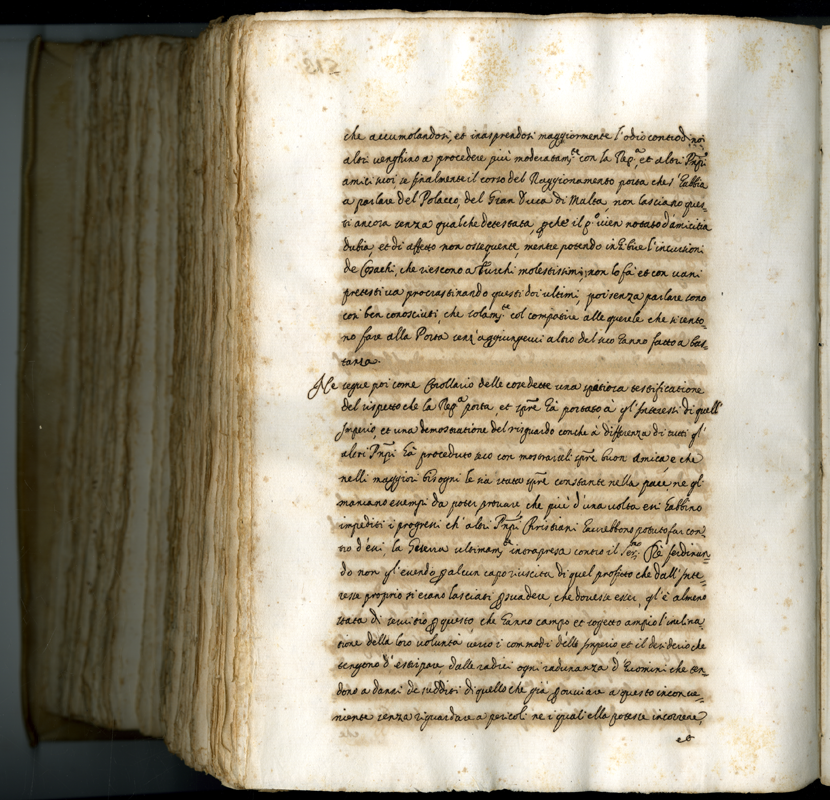 che accumolandosi, et inasprendosi maggiormente l'odio contro di noi
altri venghino a procedere più moderatam.te con la Rep.a et altri Pnpi
amici suoi se finalmente il corso del Raggionamento porta che s'habbia
a parlare del Polacco, del Gran Duca di Malta non lasciano ques=
ti ancora senza qualche detestata, pche il p.o vien notato d'amicitia
dubia, et di affetto non ossequente, mentre potendo inhibire l'incursioni
de Cosachi, che riescono a Turchi molestissimi; non lo fà et con vani
pretesti va procrastinando questi doi ultimi, poi senza parlare sono
così ben conosciuti, che solam.te col compatire alle querele che si sento=
no fare alla Porta senz'aggiungervi altro del suo hanno fatto a bas=
tanza.
Ne segue poi come Corollario delle cose dette una spatiosa testificatione
del rispetto che la Rep.a porta, et spre hà portato à gl'Interessi di quell'
Imperio, et una demostratione del risguardo con che à differenza di tutti gl'
altri Pnpi hà proceduto seco con mostrarseli spre buon Amica, e che
nelli maggiori bisogni le sia stata spre constante nella pace ne gl'
mancano esempi da poter provare che più d'una volta essi habbino
impediti i progressi ch'altri Pnpi Christiani havrebbono potuto far con=
tro d'essi la Guerra ultimam.te intrapresa contro il Ser.mo Rè Ferdinan=
do non gl'essendo p alcun capo riuscita di quel profitto che dall'Inte=
resse proprio si erano lasciati psuadere, che dovesse esser, gl'è almeno
stata di servitio p questo che hanno campo et sogetto ampio l'inclina=
tione della loro volontà verso i commodi dello Imperio et il desiderio che
tengono d'estirpare dalle radici ogni radunanza d'Huomini che ten=
dono a danni de sudditi di quello che già p ouviare a questo inconve=
niente senza riguardare a pericoli ne i quali ella potesse incorrere,
et